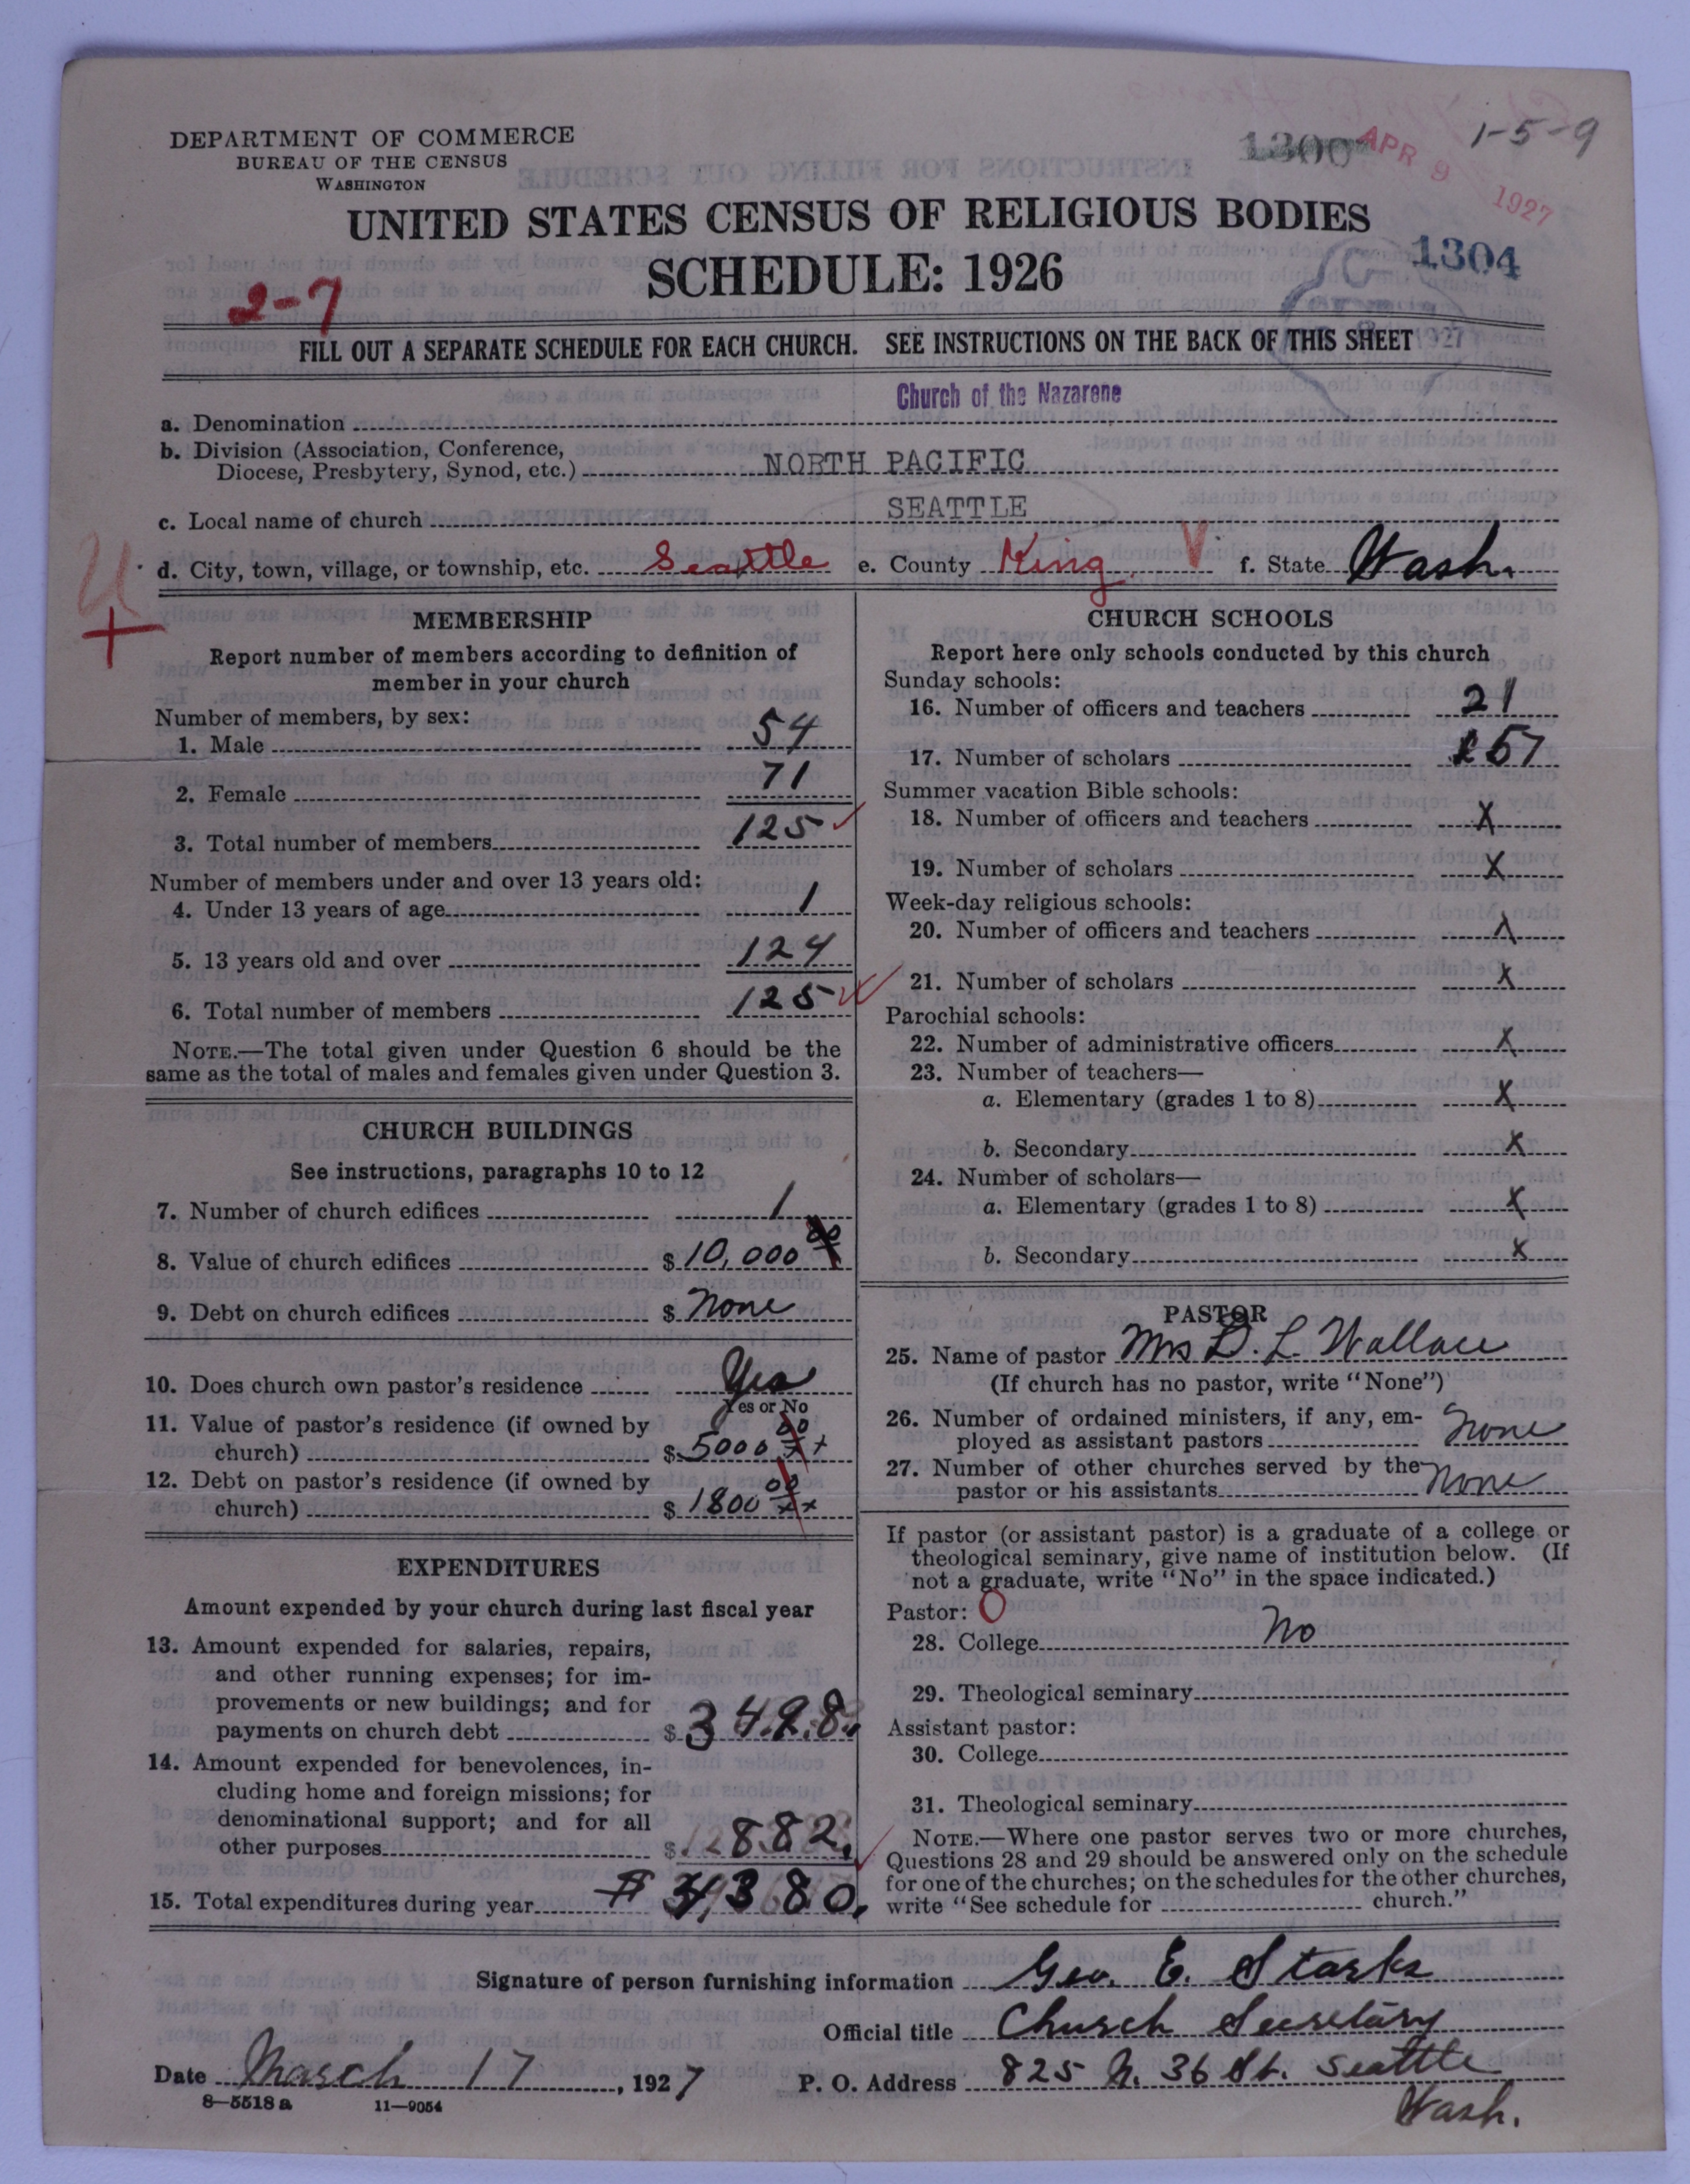 DEPARTMENT OF COMMERCE
BUREAU OF THE CENSUS
WASHINGTON
1300
APR 9 1927
1-5-9
UNITED STATES CENSUS OF RELIGIOUS BODIES
SCHEDULE: 1926
1304
2-7
1927
FILL OUT A SEPARATE SCHEDULE FOR EACH CHURCH. SEE INSTRUCTIONS ON THE BACK OF THIS SHEET
Church of the Nazarene
a. Denomination
b. Division (Association, Conference,
Diocese, Presbytery, Synod, etc.) NORTH PACIFIC
c. Local name of church SEATTLE
d. City, town, village, or township, etc. Seattle e. County King V f. State Wash.
MEMBERSHIP
Report number of members according to definition of
member in your church
Number of members, by sex:
1. Male 54
2. Female 71
3. Total number of members 125
Number of members under and over 13 years old:
4. Under 13 years of age 1
5. 13 years old and over 124
6. Total number of members 125
NOTE.—The total given under Question 6 should be the
same as the total of males and females given under Question 3.
CHURCH BUILDINGS
See instructions, paragraphs 10 to 12
7. Number of church edifices 1
8. Value of church edifices $ 10,000 00
9. Debt on church edifices $ None
10. Does church own pastor's residence Yes
Yes or No
11. Value of pastor's residence (if owned by
church) $ 5000 00
12. Debt on pastor's residence (if owned by
church) $ 1800 00
EXPENDITURES
Amount expended by your church during last fiscal year
13. Amount expended for salaries, repairs,
and other running expenses; for im-
provements or new buildings; and for
payments on church debt $ 3498.
14. Amount expended for benevolences, in-
cluding home and foreign missions; for
denominational support; and for all
other purposes $ 882.
15. Total expenditures during year $ 4380.
CHURCH SCHOOLS
Report here only schools conducted by this church
Sunday schools:
16. Number of officers and teachers 21
17. Number of scholars 157
Summer vacation Bible schools:
18. Number of officers and teachers X
19. Number of scholars X
Week-day religious schools:
20. Number of officers and teachers X
21. Number of scholars X
Parochial schools:
22. Number of administrative officers X
23. Number of teachers—
a. Elementary (grades 1 to 8) X
b. Secondary X
24. Number of scholars—
a. Elementary (grades 1 to 8) X
b. Secondary X
PASTOR
25. Name of pastor Mrs D. L. Wallace
(If church has no pastor, write "None")
26. Number of ordained ministers, if any, em-
ployed as assistant pastors None
27. Number of other churches served by the
pastor or his assistants None
If pastor (or assistant pastor) is a graduate of a college or
theological seminary, give name of institution below. (If
not a graduate, write "No" in the space indicated.)
Pastor: O
28. College No
29. Theological seminary
Assistant pastor:
30. College
31. Theological seminary
NOTE.—Where one pastor serves two or more churches,
Questions 28 and 29 should be answered only on the schedule
for one of the churches; on the schedules for the other churches,
write "See schedule for church."
Signature of person furnishing information Geo. E. Starks
Official title Church Secretary
Date March 17, 1927 P. O. Address 825 N. 36 St. Seattle
Wash.
8—5518 a 11—9054